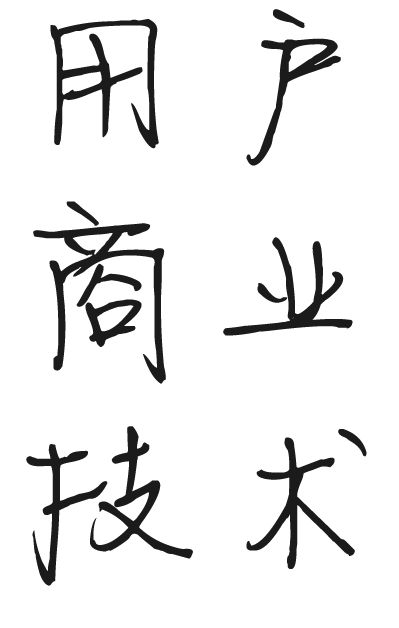 用户
商业
技术